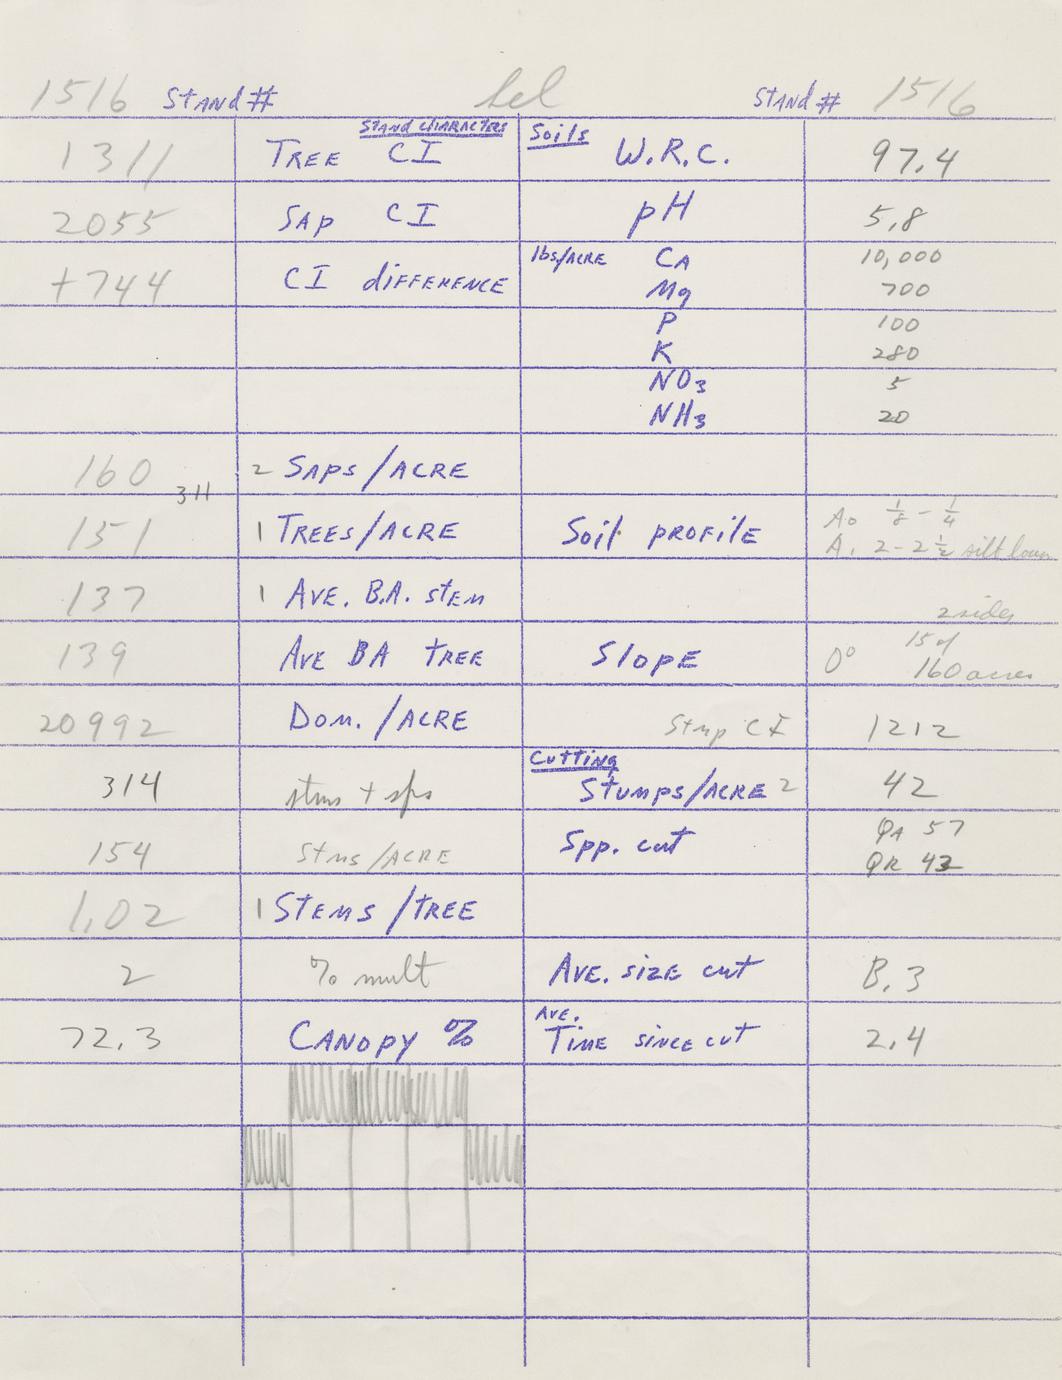 1516 Stand # bel Stand # 1516
Stand Characters Soils
1311 Tree CI W.R.C. 97.4
2055 Sap CI pH 5.8
lbs/Acre Ca 10,000
+744 CI difference Mg 700
P 100
K 280
NO3 5
NH3 20
160 2 Saps/Acre
311
151 1 Trees/Acre Soil profile A0 1/8 - 1/4
A1 2-2 1/2 silt loam
137 1 Ave. B.A. stem
2 sides
139 Ave BA tree Slope 0° 15 of
160 acres
20992 Dom./Acre Stmp CI 1212
Cutting
314 stms + sps Stumps/Acre 2 42
QA 57
154 Stms/Acre Spp. cut QR 43
1.02 1 Stems/tree
2 % mult Ave. size cut B.3
Ave.
72.3 Canopy % Time since cut 2.4